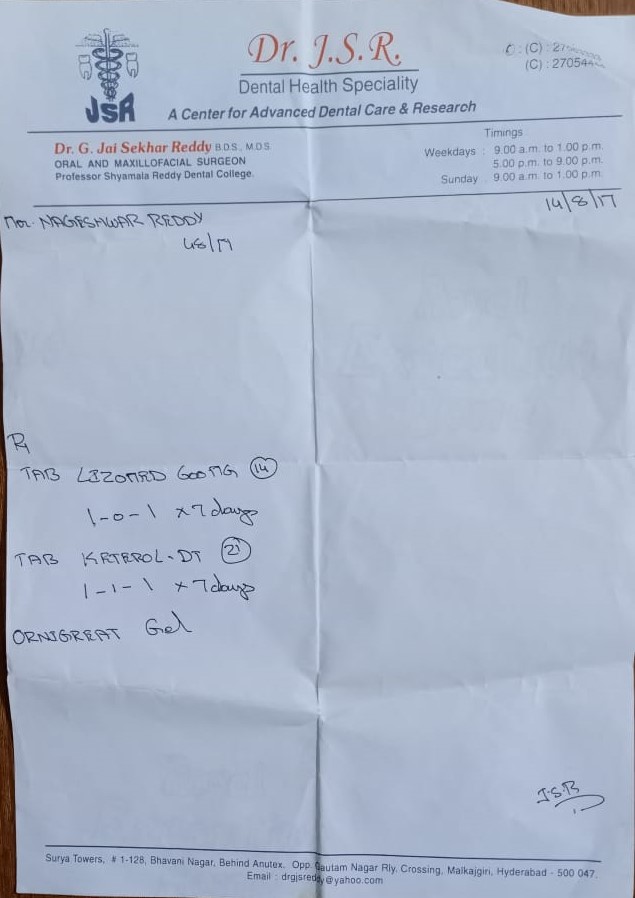 JSR
Dr. J.S.R.
Dental Health Speciality
A Center for Advanced Dental Care & Research
(C) :
(C) : 27054
Dr. G. Jai Sekhar Reddy B.D.S., M.D.S
ORAL AND MAXILLOFACIAL SURGEON
Professor Shyamala Reddy Dental College.
Timings
Weekdays : 9.00 a.m. to 1.00 p.m.
5.00 p.m. to 9.00 p.m.
Sunday : 9.00 a.m. to 1.00 p.m.
14/8/17
Mr. NAGESHWAR REDDY
48/M
Rx
TAB LIZOMED 600MG (14)
1-0-1 x 7 days
TAB KETEROL-DT (21)
1-1-1 x 7 days
ORNIGREAT Gel
J.S.R
Surya Towers, # 1-128, Bhavani Nagar, Behind Anutex, Opp. Gautam Nagar Rly. Crossing, Malkajgiri, Hyderabad - 500 047.
Email : drgjsreddy@yahoo.com